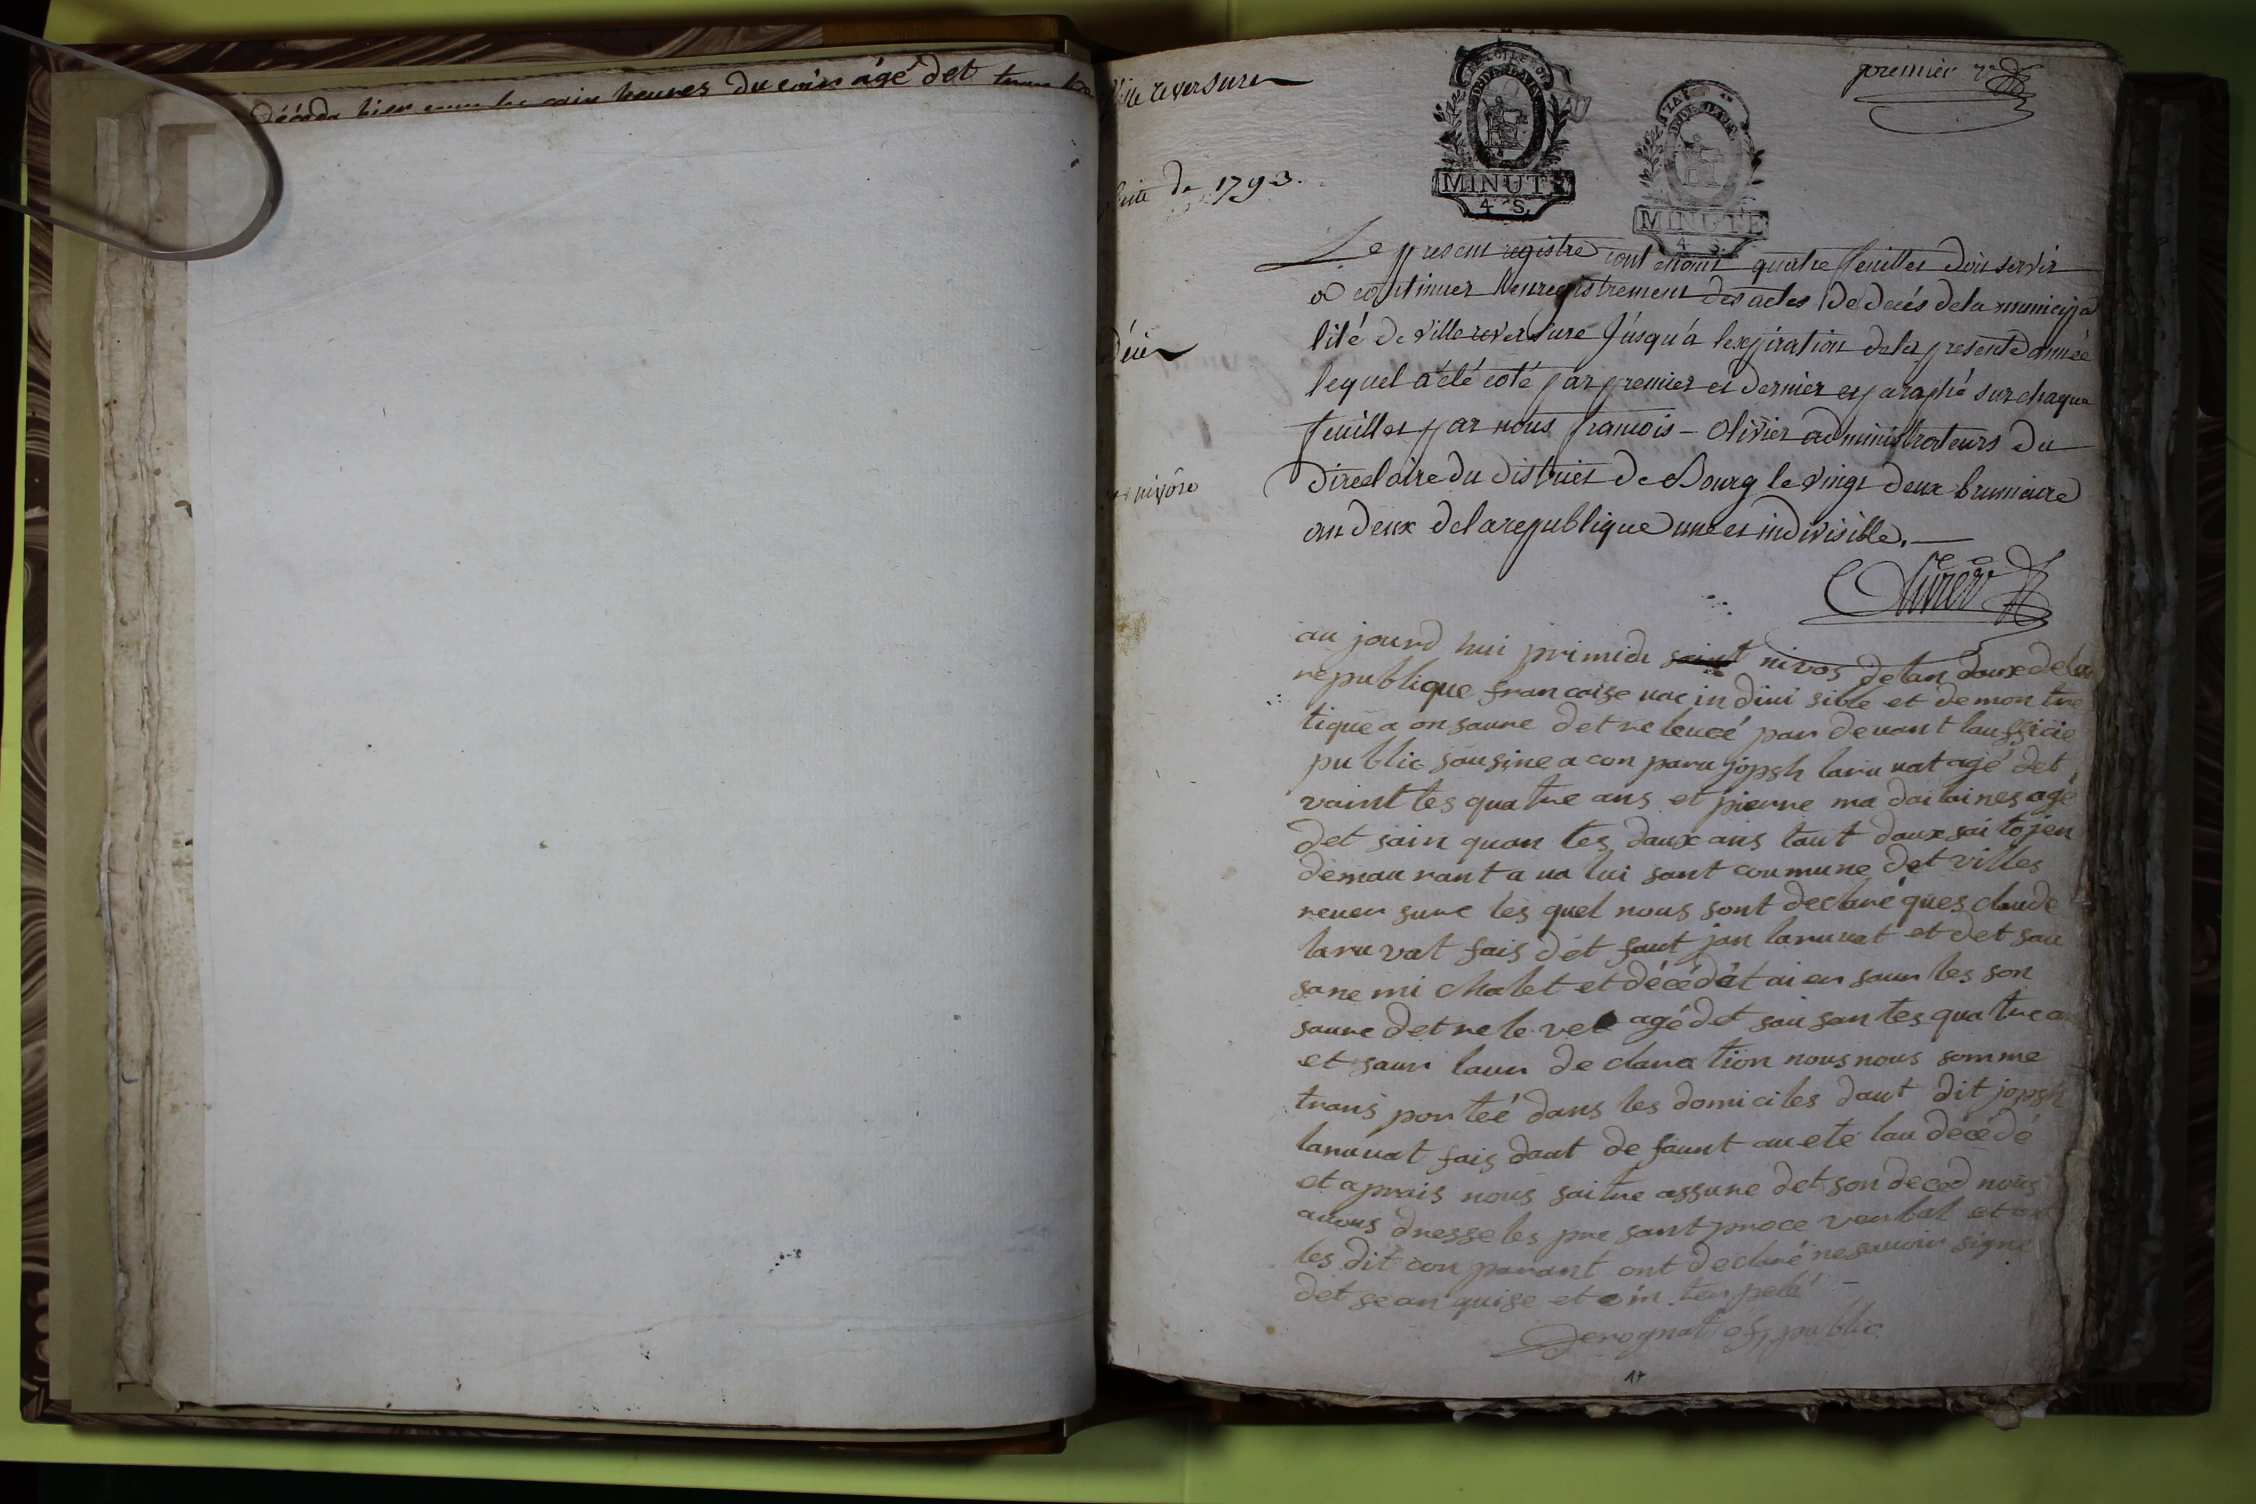 décéda hier heures du soir âgé det
Ville reversure
premier
Suite de 1793.
MINUTE
4 S.
MINUTE
4 S.
décès
nivôse
Le present registre contenant quatre feuilles doit servir
a continuer l'enregistrement des actes de decés dela municipa
lité de Ville reversure Jusqu'a l'expiration dela presente année
lequel a été coté par premier et dernier et paraphé sur chaque
feuilles par nous francois - Olivier administrateurs du
Directoire du district de Bourg le vingt deux brumaire
an deux dela republique une et indivisible.
Olivier
au jourd hui primidi nivos delan doux dela
republique francaise une in divi sible et de mon tre
tique a on saure det re leucé par devant laufficie
public sousine a con paru jopsh laru vat agé det
vaint tes quatre ans et pierre ma dai laines agé
det sain quan tes daux ans taut daux sai tojen
demau rant a ua lui sant coumune det villes
rever sure les quel nous sont declaré ques claude
laru vat fais det faut jan laruvat et det sau
sane mi chalet et décédét ai er saur les son
saure det re le vet agé det sau san tes quatre an
et saur laur de clara tion nous nous somme
trans porteé dans les domiciles daut dit jopsh
laruvat fais daut de faunt au eté lau decédé
et aprais nous saitre assure det son deced nous
avous dresse les pre sant proce verbal et
les dit con parant ont declaré ne savoir signé
det se an quise et in ter pelé
Perognat off public
17